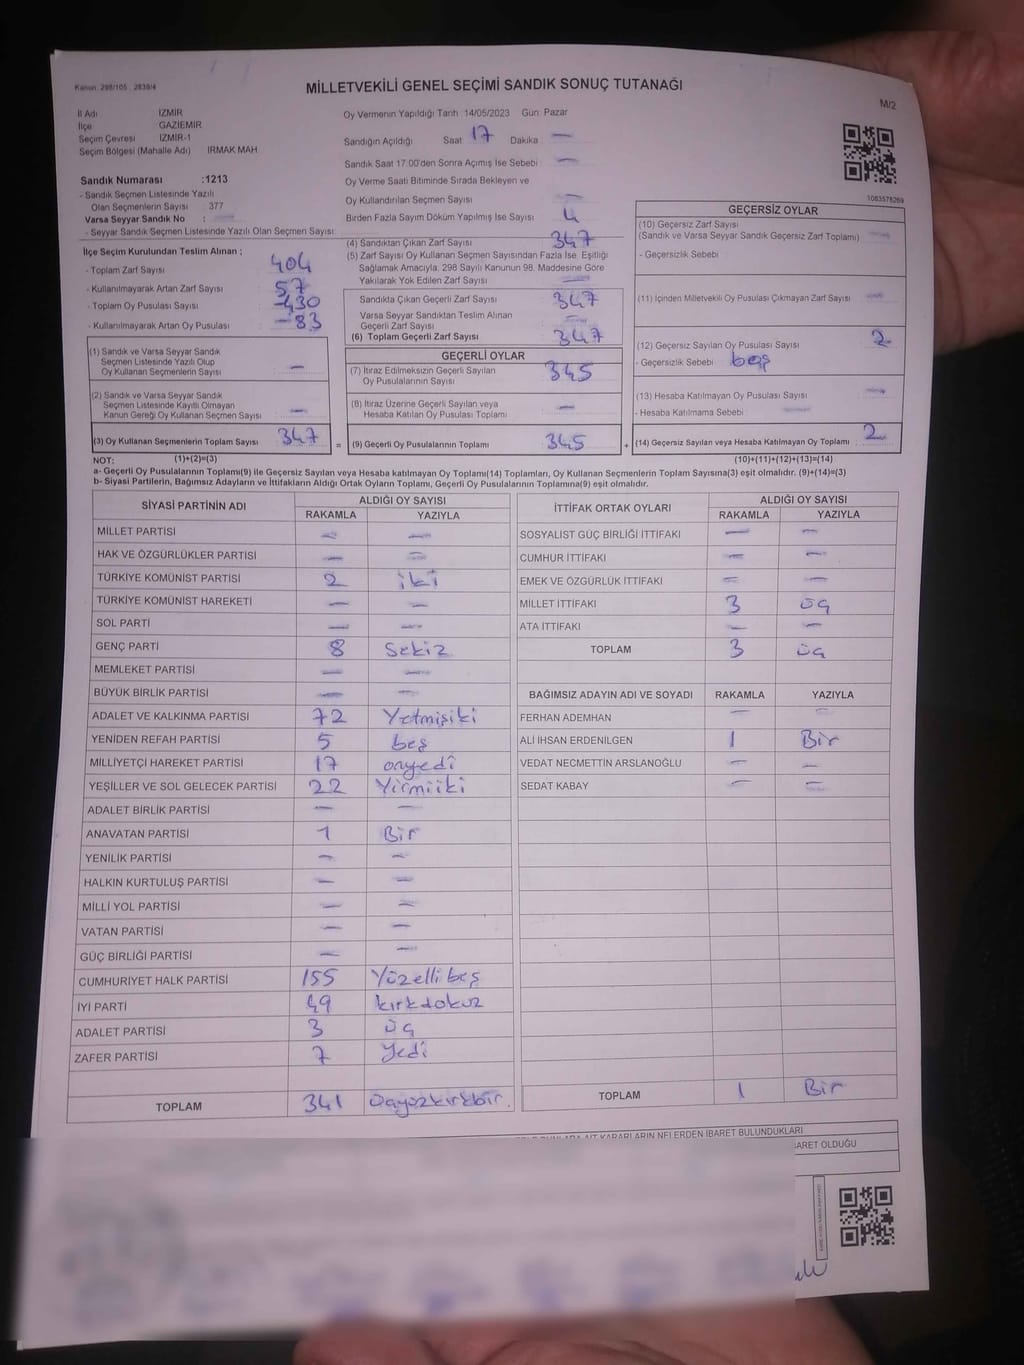 Kanun: 298/105 , 2839/4
MİLLETVEKİLİ GENEL SEÇİMİ SANDIK SONUÇ TUTANAĞI
M/2
İl Adı İZMİR
İlçe GAZİEMİR
Seçim Çevresi İZMİR-1
Seçim Bölgesi (Mahalle Adı) IRMAK MAH
Sandık Numarası :1213
- Sandık Seçmen Listesinde Yazılı
Olan Seçmenlerin Sayısı : 377
Varsa Seyyar Sandık No : —
- Seyyar Sandık Seçmen Listesinde Yazılı Olan Seçmen Sayısı:
Oy Vermenin Yapıldığı Tarih 14/05/2023 Gün Pazar
Sandığın Açıldığı Saat 17 Dakika —
Sandık Saat 17.00'den Sonra Açımış İse Sebebi —
Oy Verme Saati Bitiminde Sırada Bekleyen ve
Oy Kullandırılan Seçmen Sayısı —
Birden Fazla Sayım Döküm Yapılmış İse Sayısı 4
1083578269
İlçe Seçim Kurulundan Teslim Alınan ;
- Toplam Zarf Sayısı 404
- Kullanılmayarak Artan Zarf Sayısı 57
- Toplam Oy Pusulası Sayısı 430
- Kullanılmayarak Artan Oy Pusulası 83
(1) Sandık ve Varsa Seyyar Sandık
Seçmen Listesinde Yazılı Olup
Oy Kullanan Seçmenlerin Sayısı —
(2) Sandık ve Varsa Seyyar Sandık
Seçmen Listesinde Kayıtlı Olmayan
Kanun Gereği Oy Kullanan Seçmen Sayısı —
(3) Oy Kullanan Seçmenlerin Toplam Sayısı 347
(4) Sandıktan Çıkan Zarf Sayısı 347
(5) Zarf Sayısı Oy Kullanan Seçmen Sayısından Fazla İse, Eşitliği
Sağlamak Amacıyla, 298 Sayılı Kanunun 98. Maddesine Göre
Yakılarak Yok Edilen Zarf Sayısı —
Sandıkta Çıkan Geçerli Zarf Sayısı 347
Varsa Seyyar Sandıktan Teslim Alınan
Geçerli Zarf Sayısı —
(6) Toplam Geçerli Zarf Sayısı 347
GEÇERLİ OYLAR
(7) İtiraz Edilmeksizin Geçerli Sayılan
Oy Pusulalarının Sayısı 345
(8) İtiraz Üzerine Geçerli Sayılan veya
Hesaba Katılan Oy Pusulası Toplamı —
= (9) Geçerli Oy Pusulalarının Toplamı 345
GEÇERSİZ OYLAR
(10) Geçersiz Zarf Sayısı
(Sandık ve Varsa Seyyar Sandık Geçersiz Zarf Toplamı) —
- Geçersizlik Sebebi
(11) İçinden Milletvekili Oy Pusulası Çıkmayan Zarf Sayısı —
(12) Geçersiz Sayılan Oy Pusulası Sayısı 2
- Geçersizlik Sebebi boş
(13) Hesaba Katılmayan Oy Pusulası Sayısı —
- Hesaba Katılmama Sebebi —
+ (14) Geçersiz Sayılan veya Hesaba Katılmayan Oy Toplamı 2
NOT: (1)+(2)=(3)
(10)+(11)+(12)+(13)=(14)
a- Geçerli Oy Pusulalarının Toplamı(9) ile Geçersiz Sayılan veya Hesaba katılmayan Oy Toplamı(14) Toplamları, Oy Kullanan Seçmenlerin Toplam Sayısına(3) eşit olmalıdır. (9)+(14)=(3)
b- Siyasi Partilerin, Bağımsız Adayların ve İttifakların Aldığı Ortak Oyların Toplamı, Geçerli Oy Pusulalarının Toplamına(9) eşit olmalıdır.
SİYASİ PARTİNİN ADI ALDIĞI OY SAYISI
RAKAMLA YAZIYLA
MİLLET PARTİSİ — —
HAK VE ÖZGÜRLÜKLER PARTİSİ — —
TÜRKİYE KOMÜNİST PARTİSİ 2 iki
TÜRKİYE KOMÜNİST HAREKETİ — —
SOL PARTİ — —
GENÇ PARTİ 8 Sekiz
MEMLEKET PARTİSİ — —
BÜYÜK BİRLİK PARTİSİ — —
ADALET VE KALKINMA PARTİSİ 72 Yetmişiki
YENİDEN REFAH PARTİSİ 5 beş
MİLLİYETÇİ HAREKET PARTİSİ 17 onyedi
YEŞİLLER VE SOL GELECEK PARTİSİ 22 Yirmiiki
ADALET BİRLİK PARTİSİ — —
ANAVATAN PARTİSİ 1 Bir
YENİLİK PARTİSİ — —
HALKIN KURTULUŞ PARTİSİ — —
MİLLİ YOL PARTİSİ — —
VATAN PARTİSİ — —
GÜÇ BİRLİĞİ PARTİSİ — —
CUMHURİYET HALK PARTİSİ 155 Yüzelli beş
İYİ PARTİ 49 kırkdokuz
ADALET PARTİSİ 3 üç
ZAFER PARTİSİ 7 Yedi
TOPLAM 341
İTTİFAK ORTAK OYLARI ALDIĞI OY SAYISI
RAKAMLA YAZIYLA
SOSYALİST GÜÇ BİRLİĞİ İTTİFAKI — —
CUMHUR İTTİFAKI — —
EMEK VE ÖZGÜRLÜK İTTİFAKI — —
MİLLET İTTİFAKI 3 üç
ATA İTTİFAKI — —
TOPLAM 3 üç
BAĞIMSIZ ADAYIN ADI VE SOYADI RAKAMLA YAZIYLA
FERHAN ADEMHAN — —
ALİ İHSAN ERDENİLGEN 1 Bir
VEDAT NECMETTİN ARSLANOĞLU — —
SEDAT KABAY — —
TOPLAM 1 Bir
KARARLARIN NELERDEN İBARET BULUNDUKLARI
OLDUĞU